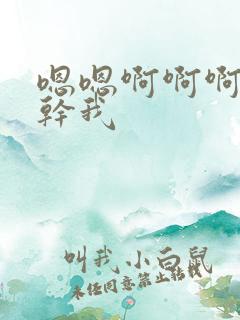 嗯嗯啊啊啊
幹我
叫我小白鼠
未任同意禁止转载